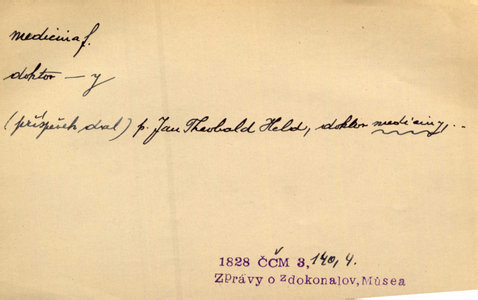 medicina f.
doktor – y
(příspěvek dal) p. Jan Theobald Held, doktor mediciny,..
1828 ČČM 3, 140, 4.
Zprávy o zdokonalov, Músea